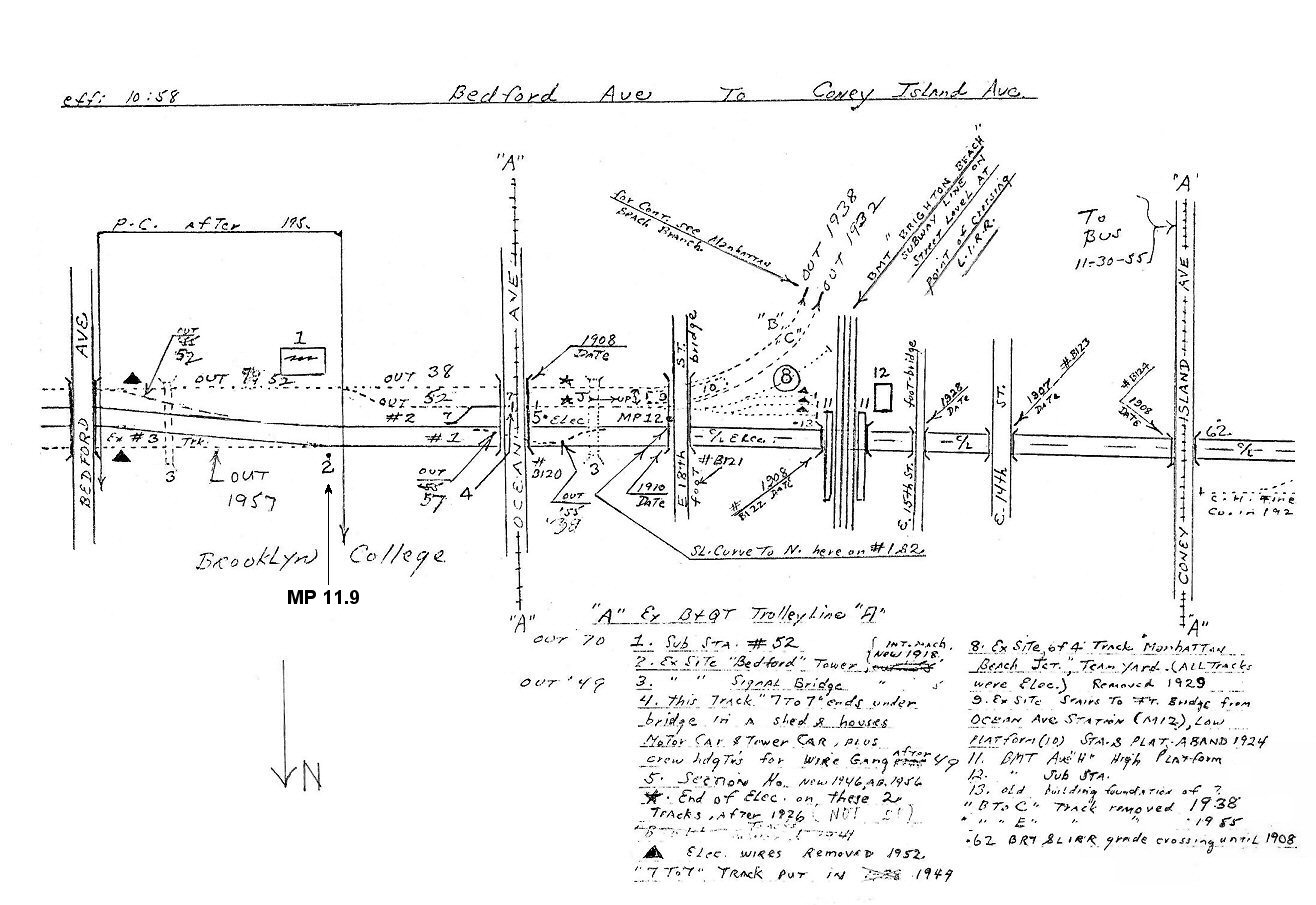 eff: 10:58
Bedford Ave To Coney Island Ave.
"A"
"A"
P.C. after 195.
for Cont. see Manhattan
Beach Branch.
OUT 1938
OUT 1932
BMT "BRIGHTON BEACH"
SUBWAY LINE ON
STREET LEVEL AT
POINT OF CROSSING
L.I.R.R.
To
BUS
11-30-55
BEDFORD AVE
OUT
55
52
1
OUT 52
OUT 38
OUT 52
#2
7
#1
Ex #3 Trk.
3
OUT
1957
2
OUT
55
57
4
OCEAN AVE
7
1908
DATE
J
UP
5 • Elec
MP 12
#
B120
3
OUT
'55
'38
1910
DATE
E 18th ST.
foot bridge
"B"
"C"
10
8
•13
C/L Elec.
#B121
#
B122
1908
DATE
11
11
12
foot-bridge
E. 15th ST.
1928
DATE
C/L
E. 14th ST.
1907
DATE
#B123
#B124
1908
DATE
CONEY ISLAND AVE
62.
C/L
Co. in 192
SL. Curve To N. here on #1&2
Brooklyn College
MP 11.9
N
"A"
"A"
"A" Ex B&QT Trolley Line "A"
OUT 70
1. Sub STA. #52
INT. Mach.
New 1918
2. Ex Site "Bedford" Tower
OUT '49
3. " " Signal Bridge " 5
4. This Track "7 To 7" ends under
bridge in a shed & houses
Motor Car & Tower CAR, plus
crew hdqTrs for Wire Gang after 49
5. Section No. New 1946, AB. 1956
★. End of Elec. on these 2
Tracks, After 1926
▲ Elec. wires Removed 1952.
"7 To 7" Track put in 1949
8. Ex Site of 4 Track "Manhattan
Beach Jct.", Team yard. (ALL Tracks
were Elec.) Removed 1929
9. Ex Site Stairs To Ft. Bridge from
Ocean Ave Station (M12), Low
Platform (10) STA. & PLAT. ABAND 1924
11. BMT Ave "H" High Platform
12. " Sub STA.
13. old building foundation of ?
"B To C" Track removed 1938
" " "E" " " 1955
•62 BRT & LIRR grade crossing until 1908